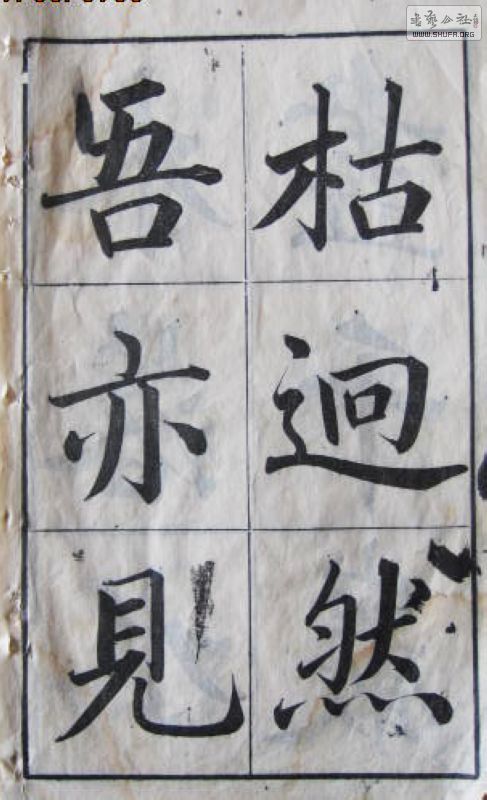 枯迥然
吾亦見
書法公社
WWW.SHUFA.ORG